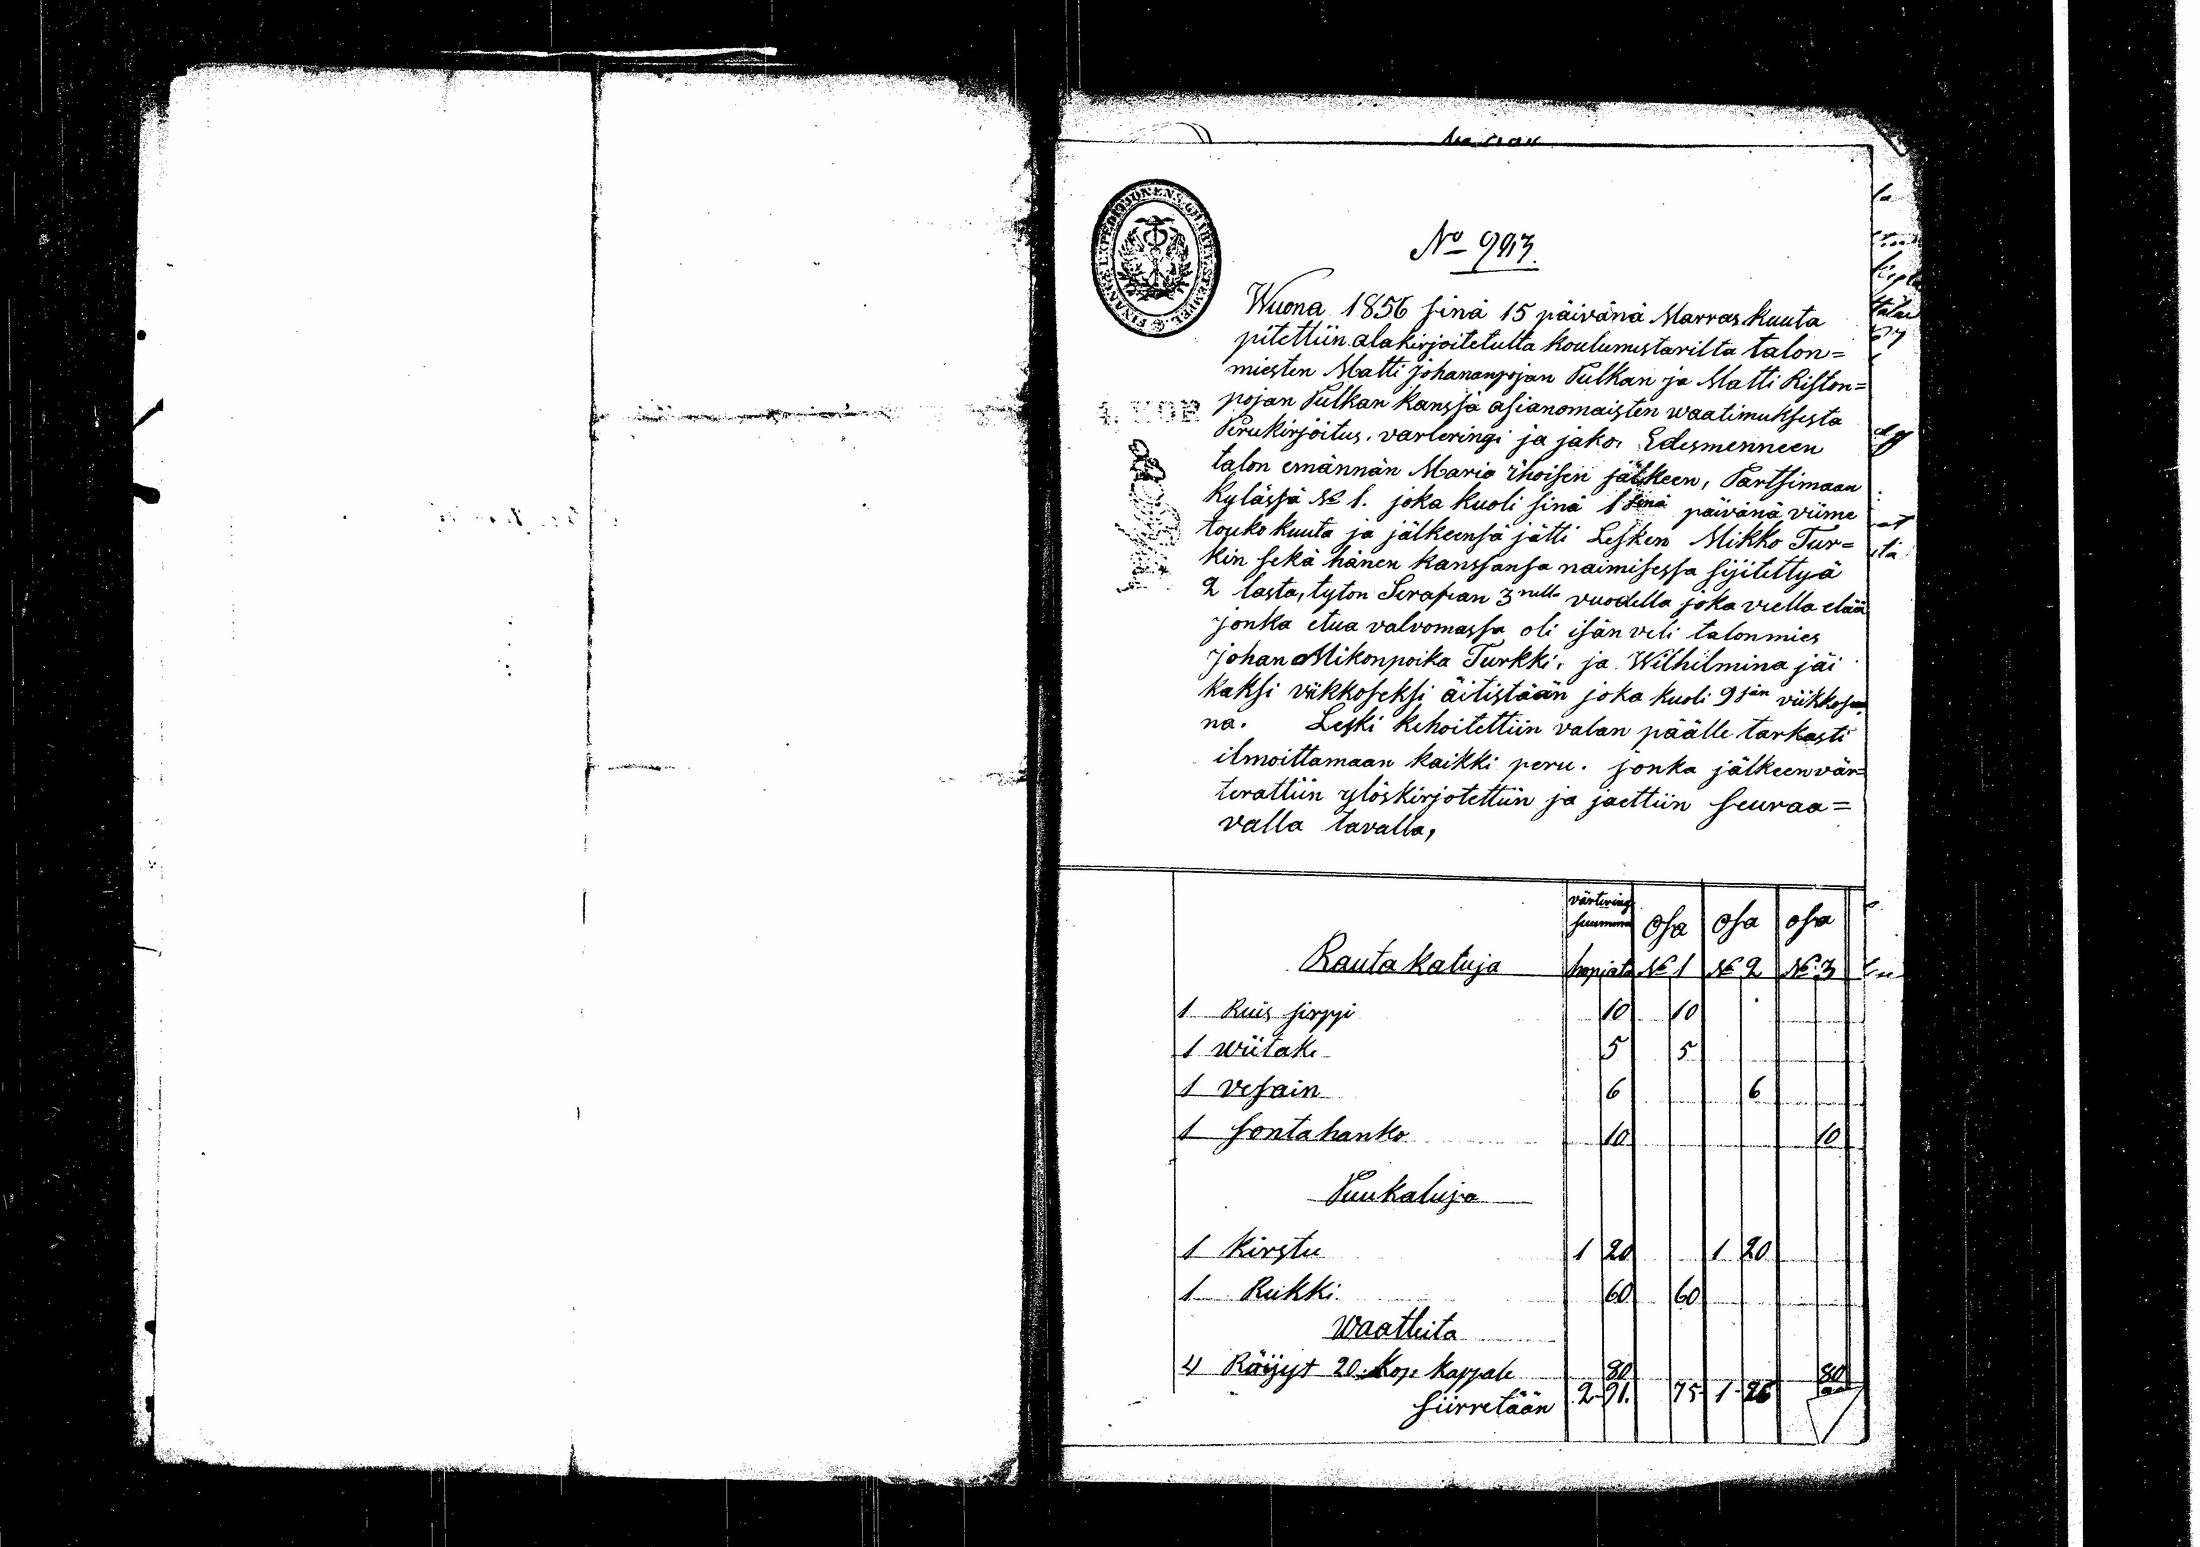 FINANCE EXPEDITIONENS CHARTÆ STEMPEL
No 993.
Wuona 1856 sinä 15 päivänä Marraskuuta
pitettiin alakirjoitetulta koulumestarilta talon=
miesten Matti Johananpojan Pulkan ja Matti Riston=
pojan Pulkan kanssa asianomaisten waatimuksesta
Perukirjoitus, varteringi ja jako, Edesmenneen
talon emännän Maria Ihoisen jälkeen, Partsimaan
kylässä No 1. joka kuoli sinä 1 senä päivänä viime
toukokuuta ja jälkeensä jätti Lesken Mikko Tur=
kin sekä hänen kanssansa naimisessa sijitettyä
2 lasta, tyton Serafian 3 nella vuodella joka viella elää
jonka etua valvomassa oli isän veli talonmies
Johan Mikonpoika Turkki, ja Wilhilmina jäi
kaksi viikkoseksi äitistään joka kuoli 9 sän
na. Leski kehoitettiin valan päälle tarkasti
ilmoittamaan kaikki peru. jonka jälkeen vär=
terattiin ylöskirjotettiin ja jaettiin seuraa=
valla tavalla,
värtering summa hopiata Osa No 1 Osa No 2 Osa No 3
Rauta kaluja
1 Ruis sirppi 10 10
1 wiitake 5 5
1 vesain 6 6
1 sontahanko 10 10
Puukaluja
1 Kirstu 1 20 1 20
1 Rukki 60 60
Waatteita
4 Röijyt 20 Kop kappale 80 80
Siirretään 2 91. 75 1 26